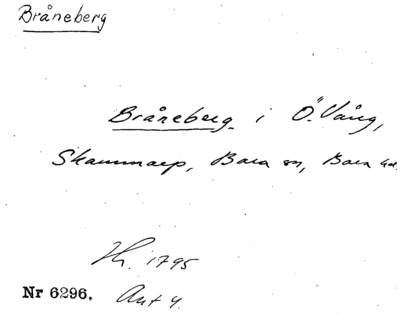 Bråneberg
Bråneberg i Ö. Vång,
Skammarp, Bara sn, Bara hd.
H. 1795
Nr 6296. Akt 4.